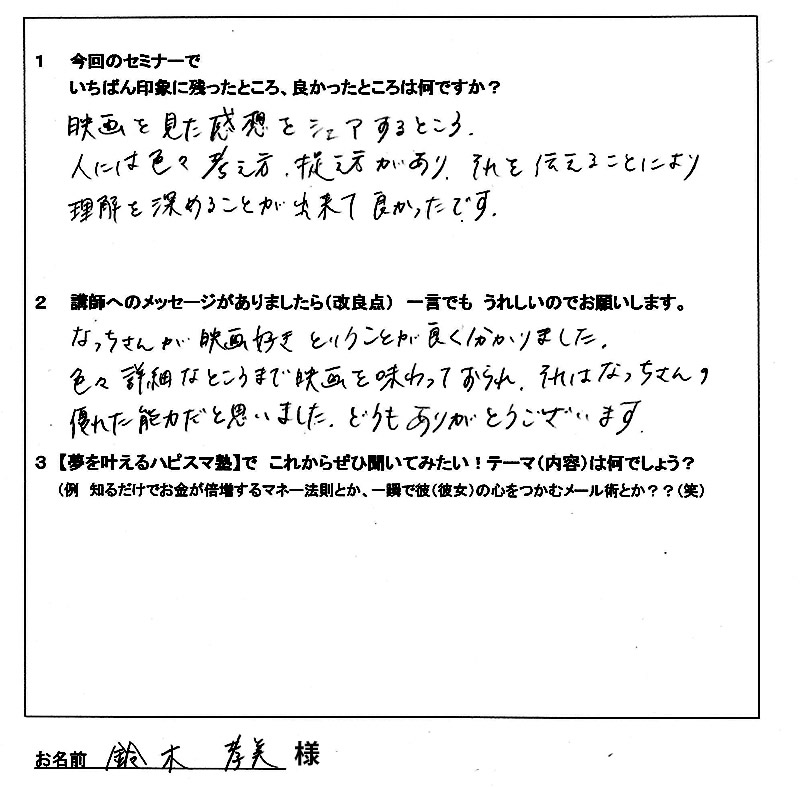 1 今回のセミナーで
いちばん印象に残ったところ、良かったところは何ですか？
映画を見た感想をシェアするところ.
人には色々考え方、捉え方があり、それを伝えることにより
理解を深めることが出来て良かったです.
2 講師へのメッセージがありましたら(改良点) 一言でも うれしいのでお願いします。
なっちさんが映画好きということが良く分かりました.
色々詳細なところまで映画を味わっておられ、それはなっちさんの
優れた能力だと思いました. どうもありがとうございます.
3 【夢を叶えるハピスマ塾】で これからぜひ聞いてみたい！テーマ(内容)は何でしょう？
(例 知るだけでお金が倍増するマネー法則とか、一瞬で彼(彼女)の心をつかむメール術とか？？(笑)
お名前 鈴木 孝美 様